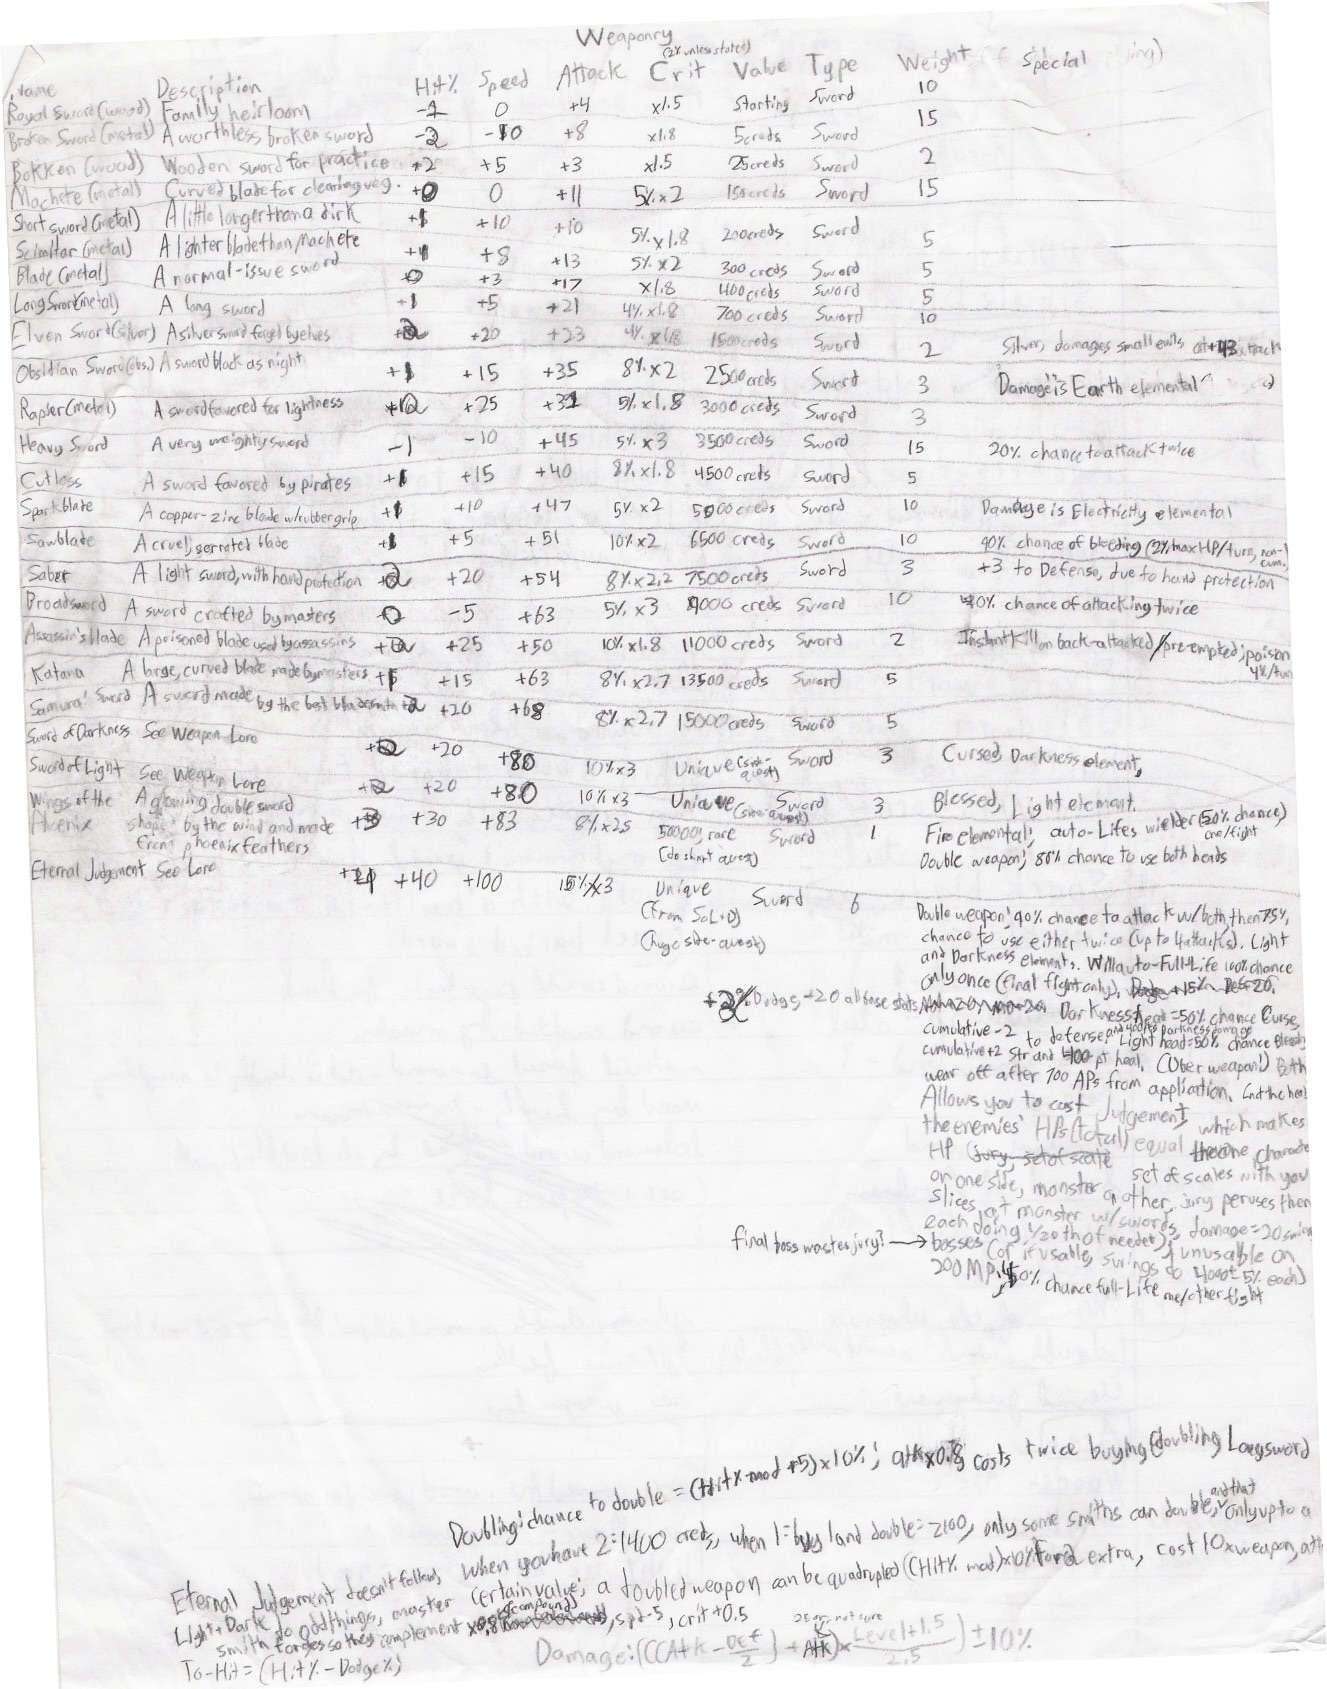 Weaponry
(2% unless stated)
Name Description Hit% Speed Attack Crit Value Type Weight Special
Royal Sword (wood) Family heirloom -1 0 +4 x1.5 Starting Sword 10
Broken Sword (metal) A worthless broken sword -2 -10 +8 x1.8 5 creds Sword 15
Bokken (wood) Wooden sword for practice +2 +5 +3 x1.5 25 creds Sword 2
Machete (metal) Curved blade for clearing veg. +0 0 +11 5% x2 150 creds Sword 15
Short sword (metal) A little longer than a dirk +1 +10 +10 5% x1.8 200 creds Sword 5
Scimitar (metal) A lighter blade than Machete +1 +8 +13 5% x2 300 creds Sword 5
Blade (metal) A normal-issue sword +0 +3 +17 x1.8 400 creds Sword 5
Long Sword (metal) A long sword +1 +5 +21 4% x1.8 700 creds Sword 10
Elven Sword (silver) A silver sword forged by elves +2 +20 +23 4% x1.8 1500 creds Sword 2 Silver, damages small evils at +43 attack
Obsidian Sword (obs.) A sword black as night +1 +15 +35 8% x2 2500 creds Sword 3 Damage is Earth elemental
Rapier (metal) A sword favored for lightness +2 +25 +31 5% x1.8 3000 creds Sword 3
Heavy Sword A very weighty sword -1 -10 +45 5% x3 3500 creds Sword 15 20% chance to attack twice
Cutlass A sword favored by pirates +1 +15 +40 8% x1.8 4500 creds Sword 5
Sparkblade A copper-zinc blade w/rubber grip +1 +10 +47 5% x2 5000 creds Sword 10 Damage is Electricity elemental
Sawblade A cruel, serrated blade +1 +5 +51 10% x2 6500 creds Sword 10 90% chance of bleeding (2% max HP/turn, non-cum.
Saber A light sword, with hand protection +2 +20 +54 8% x2.2 7500 creds Sword 3 +3 to Defense, due to hand protection
Broadsword A sword crafted by masters 0 -5 +63 5% x3 9000 creds Sword 10 40% chance of attacking twice
Assassin's blade A poisoned blade used by assassins +2 +25 +50 10% x1.8 11000 creds Sword 2 Instant Kill on back-attacked/pre-empted; poison 4%/turn
Katana A large, curved blade made by masters +1 +15 +63 8% x2.7 13500 creds Sword 5
Samurai Sword A sword made by the best bladesmith +2 +20 +68 8% x2.7 15000 creds Sword 5
Sword of Darkness See Weapon Lore +2 +20 +80 10% x3 Unique (side-quest) Sword 3 Cursed, Darkness element,
Sword of Light See Weapon Lore +2 +20 +80 10% x3 Unique (side-quest) Sword 3 Blessed, Light element.
Wings of the A glowing double sword
Phoenix shaped by the wind and made +3 +30 +83 8% x2.5 50000, rare Sword 1 Fire elemental; auto-Lifes wielder (50% chance) one/fight
from phoenix feathers (do short quest) Double weapon; 80% chance to use both heads
Eternal Judgement See Lore +4 +40 +100 15% x3 Unique Sword 6
(from SoL+D)
(huge side-quest)
Double weapon! 90% chance to attack w/both, then 75%
chance to use either twice (up to 4 attacks). Light
and Darkness elements. Will auto-Full-Life 100% chance
only once (final fight only),
+2% Dodge, +20 all base stats Darkness head=50% chance Curse,
cumulative -2 to defense, and 400 pts Darkness damage Light head=50% chance Bless,
cumulative +2 Str and 400 pt heal. (Uber weapon!) Both
wear off after 700 APs from application.
Allows you to cast Judgement, which makes
the enemies' HPs (total) equal the one character
HP (jury, set of scale set of scales with you
on one side, monster on other, jury peruses then
slices at monster w/swords, damage=20 swings
each doing 1/20th of needed), unusable on
final boss master jury? → bosses (or if usable, swings do 400± 5% each)
200 MP, 50% chance full-Life me/other fight
Doubling: chance to double = (Hit%-mod +5)x10%; atk x0.8, costs twice buying (doubling Longsword
when you have 2=1400 creds, when 1=buy 1 and double=2100, only some smiths can double, and that only up to a
certain value; a doubled weapon can be quadrupled (CHit% mod)x10% for 2 extra, cost 10x weapon, att
x0.8 (compound), spd-5, crit +0.5
Eternal Judgement doesn't follow,
Light + Dark do odd things, master
smith forges so they complement
To-Hit = (Hit% - Dodge%)
25 or, not sure
Damage: ((CCAtk - Def/2) + Atk) x (Level+1.5/2.5) ± 10%